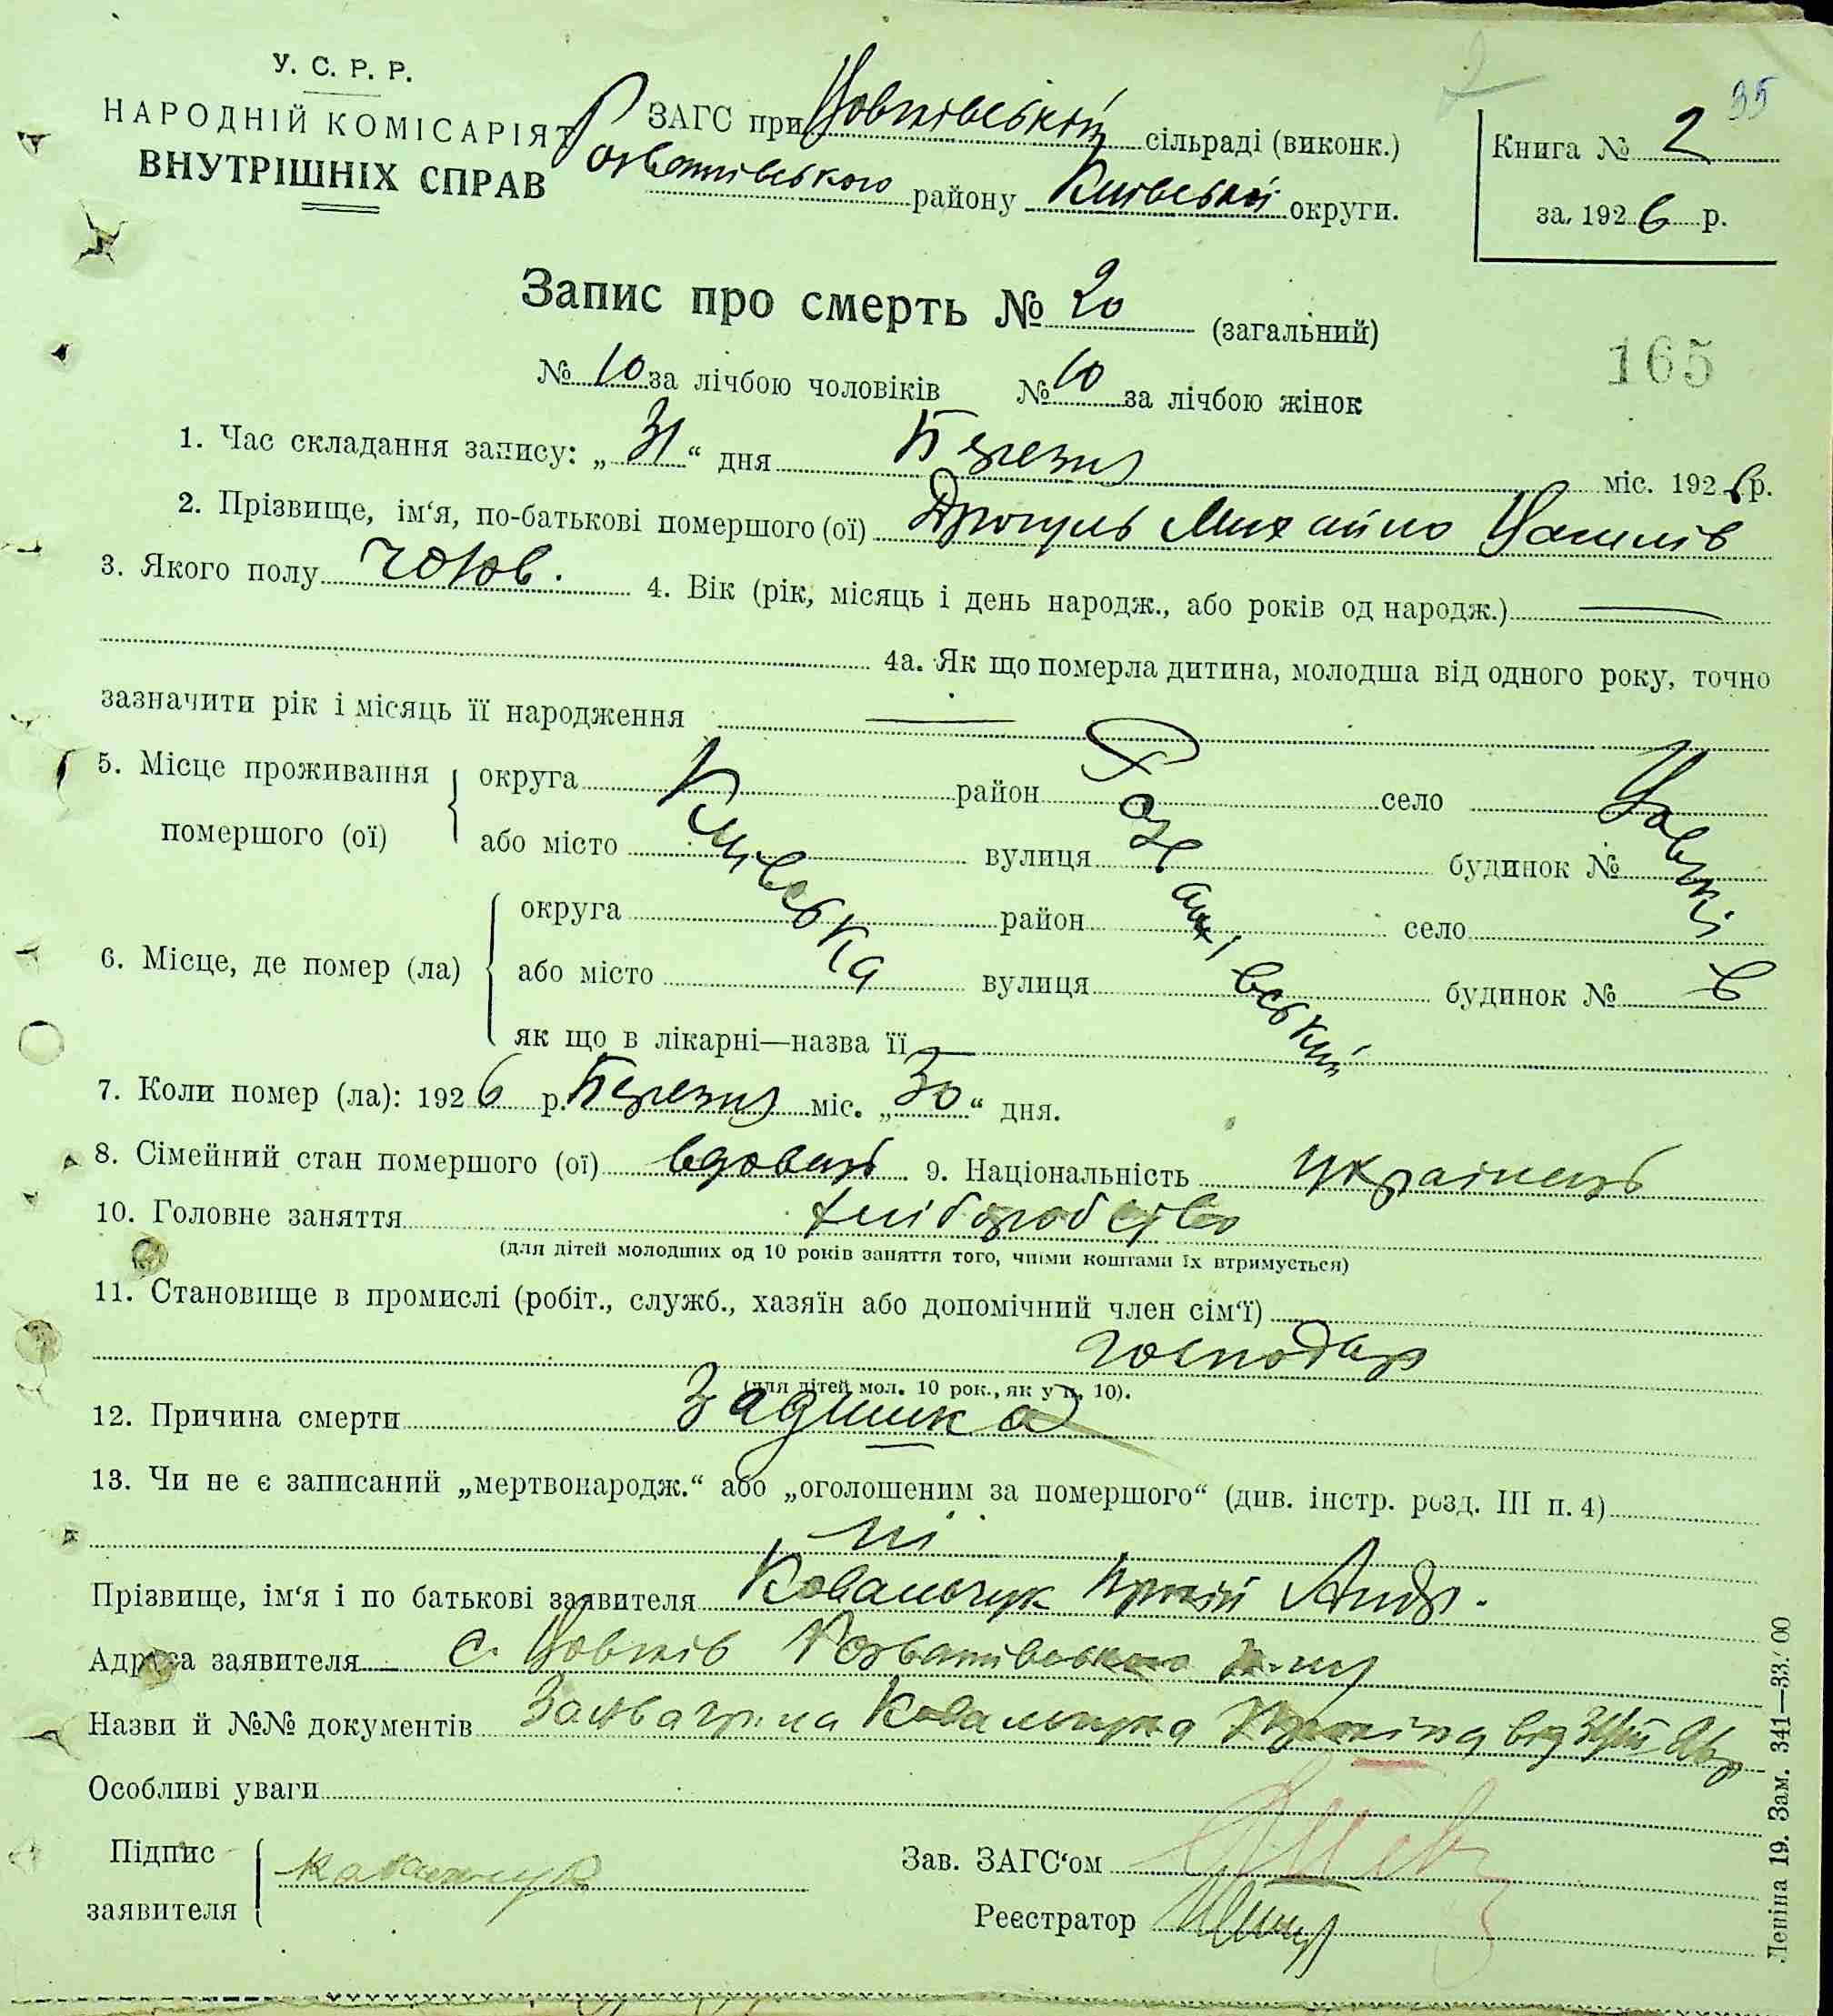 У. С. Р. Р.
НАРОДНІЙ КОМІСАРІЯТ
ВНУТРІШНІХ СПРАВ
ЗАГС при Човнівській сільраді (виконк.)
Розважівського району Київської округи.
Книга № 2
за 1926 р.
35
Запис про смерть № 20 (загальний)
165
№ 10 за лічбою чоловіків № 10 за лічбою жінок
1. Час складання запису: „31“ дня Березня міс. 1926 р.
2. Прізвище, ім‘я, по-батькові помершого (ої) Михайло
3. Якого полу чолов. 4. Вік (рік, місяць і день народж., або років од народж.)
4а. Як що померла дитина, молодша від одного року, точно
зазначити рік і місяць її народження
5. Місце проживання помершого (ої) округа Київська район село
або місто вулиця будинок №
6. Місце, де помер (ла) округа район село
або місто вулиця будинок №
як що в лікарні—назва її
7. Коли помер (ла): 1926 р. Березня міс. „30“ дня.
8. Сімейний стан помершого (ої) вдовець 9. Національність українець
10. Головне заняття хліборобство
(для дітей молодших од 10 років заняття того, чиїми коштами їх втримується)
11. Становище в промислі (робіт., служб., хазяїн або допомічний член сім‘ї)
господар
(для дітей мол. 10 рок., як у п. 10).
12. Причина смерти Задишка
13. Чи не є записаний „мертвонародж.“ або „оголошеним за помершого“ (див. інстр. розд. III п. 4)
ні
Прізвище, ім‘я і по батькові заявителя Ковальчук Андр.
Адреса заявителя с.
Назви й №№ документів Ковальчука
Особливі уваги
Підпис заявителя Ковальчук
Зав. ЗАГС‘ом
Реєстратор
Леніна 19. Зам. 341—33.000